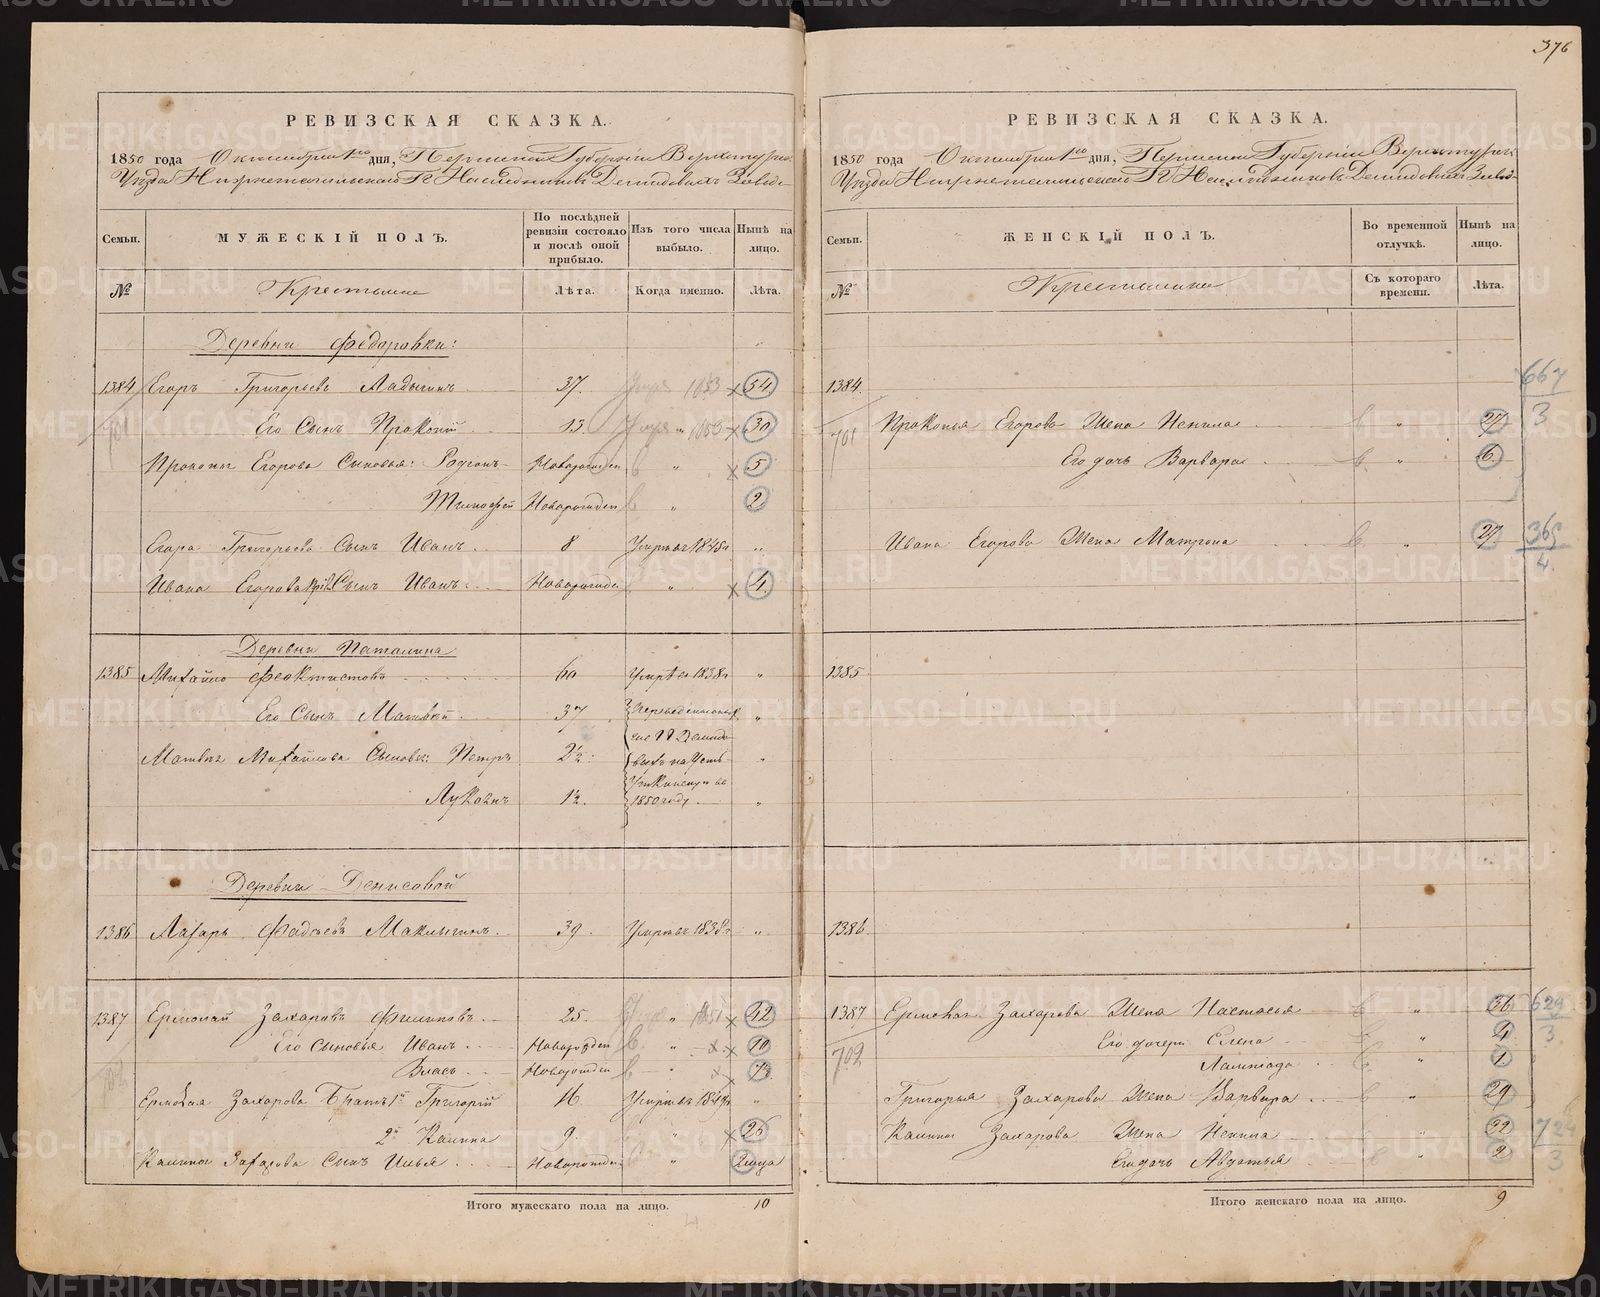 376
РЕВИЗСКАЯ СКАЗКА.
1850 года Октября 1го дня, Пермской Губернии Верхотурска
Уезда Нижнетагильскаго Гг Наследников Демидовых Завода
Семьи.
МУЖЕСКІЙ ПОЛЪ.
По послѣдней ревизіи состояло и послѣ оной прибыло.
Изъ того числа выбыло.
Нынѣ на лицо.
№
Крестьяне
Лѣта.
Когда именно.
Лѣта.
Деревни Федоровки:
1384 Егоръ Григорьевъ Ладыгинъ 37. 1853 54
701 Его Сынъ Прокопій 13. " 1853 30
Прокопья Егорова Сыновья: Родіонъ Новорожден " 5
Тимофей Новорожден " 2
Егора Григорьева Сынъ Иванъ 8 Умръ въ 1845 г "
Ивана Егорова Сынъ Иванъ Новорожден " 4
Деревни Паталина
1385 Михайло Феоктистовъ 60 Умръ въ 1838 г "
Его Сынъ Матвѣй 37 "
Матвѣя Михайлова Сыновья: Петръ 2½ "
Лукоянъ 1½. 1850 году "
Деревни Денисовой
1386 Лазарь Фадѣевъ Макшинъ 39. Умръ въ 1838 г "
1387 Ермолай Захаровъ Филиповъ 25. " 1851 42
Его Сыновья Иванъ Новорожден " 10
702 Власъ Новорожден "
Ермолая Захарова Братья 1й Григорій 16 Умръ въ 1849 г "
2й Калина 9. " 26
Калины Захарова Сынъ Илья Новорожден " 2 меца
Итого мужескаго пола на лицо. 10
РЕВИЗСКАЯ СКАЗКА.
1850 года Октября 1го дня, Пермской Губернии Верхотурск
Уезда Нижнетагильскаго Гг Наследников Демидовых Завод
Семьи.
ЖЕНСКІЙ ПОЛЪ.
Во временной отлучкѣ.
Нынѣ на лицо.
№
Крестьянки
Съ котораго времени.
Лѣта.
1384.
667
3
701 Прокопья Егорова Жена Ненила " 27
Его дочь Варвара " 6
Ивана Егорова Жена Матрона " 27
365
4.
1385
1386
1387 Ермолая Захарова Жена Настасья " 36
629
3
Его дочери Елена " 4
702 Лампіада " 1
Григорья Захарова Жена Варвара " 29
Калины Захарова Жена Ненила " 22
Его дочь Авдотья " 2
3
Итого женскаго пола на лицо. 9
METRIKI.GASO-URAL.RU